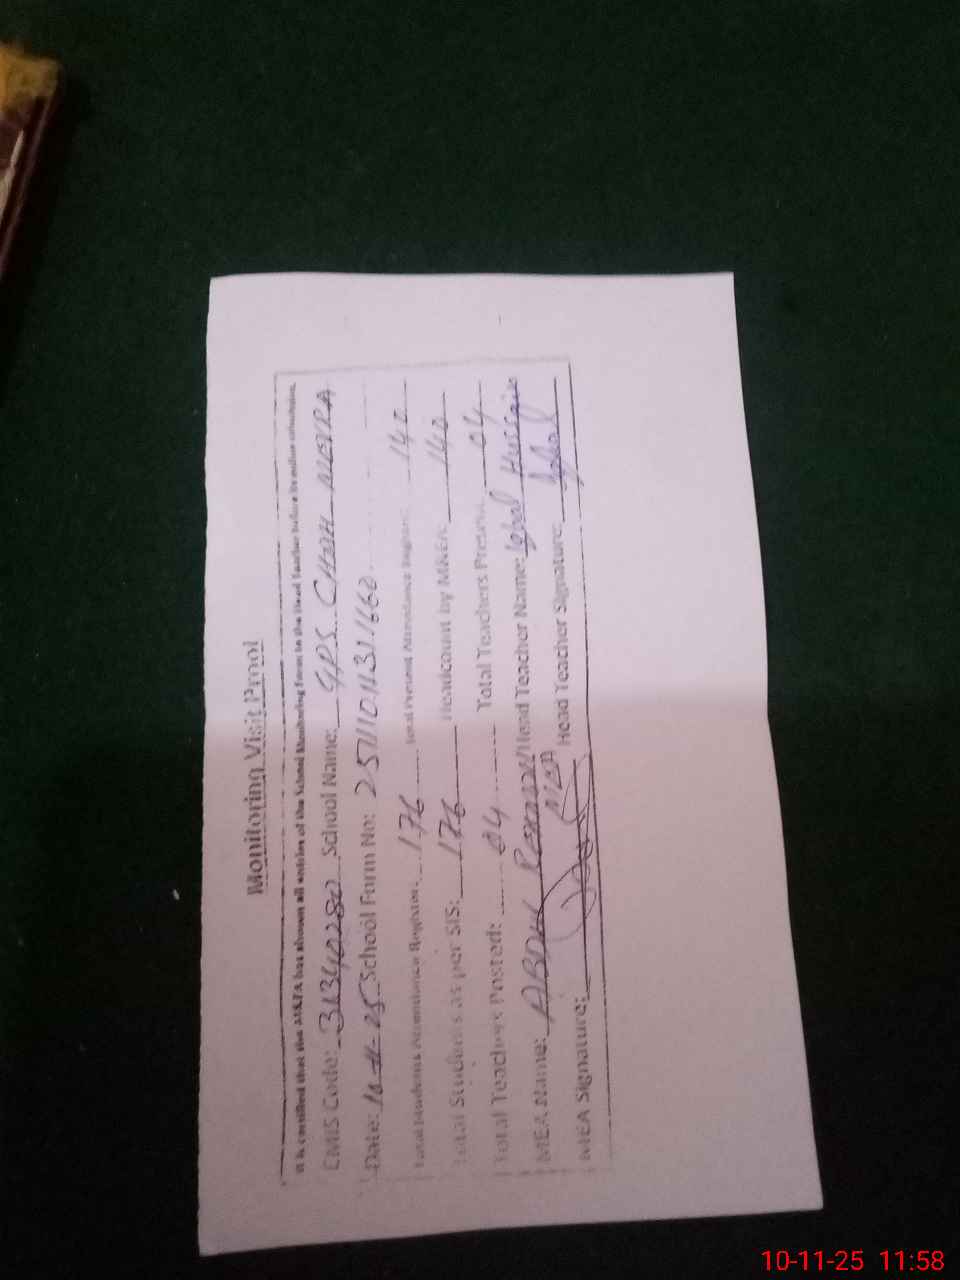 Monitoring Visit Proof
It is certified that the MEA has shown all entries of the School Monitoring Form to the Head Teacher before its online submission.
EMIS Code: 31340280 School Name: GPS CHAH
Date: 10-11-25 School Form No:
Total Students Attendance Register: 176 Total Present Attendance Register: 140
Total Students as per SIS: 176 Headcount by MNEA: 140
Total Teachers Posted: 04 Total Teachers Present: 04
MEA Name: ABDUL Head Teacher Name: Iqbal Hussain
MEA Signature: Head Teacher Signature: Iqbal
10-11-25 11:58